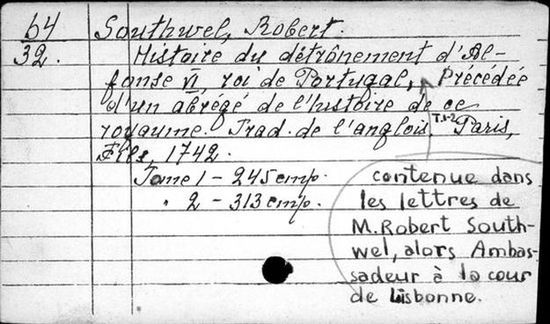 64
32.
Southwel, Robert.
Histoire du détrônement d'Al-
fonse VI roi de Portugal, Précédée
d'un abrégé de l'histoire de ce
royaume. Trad. de l'anglois T.1-2 Paris,
1742.
Tome 1 - 245 cmp.
" 2 - 313 cmp.
contenue dans
les lettres de
M. Robert South-
wel, alors Ambas-
sadeur à la cour
de Lisbonne.